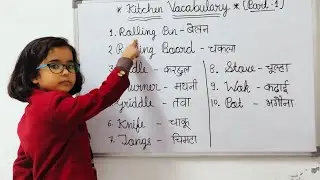 * Kitchen Vocabulary * (Part-1)
1. Rolling Pin - बेलन
2. Rolling Board - चकला
करछुल
मथनी
Griddle - तवा
6. Knife - चाकू
7. Tongs - चिमटा
8. Stove - चूल्हा
9. Wok - कढ़ाई
10. Pot - भगौना